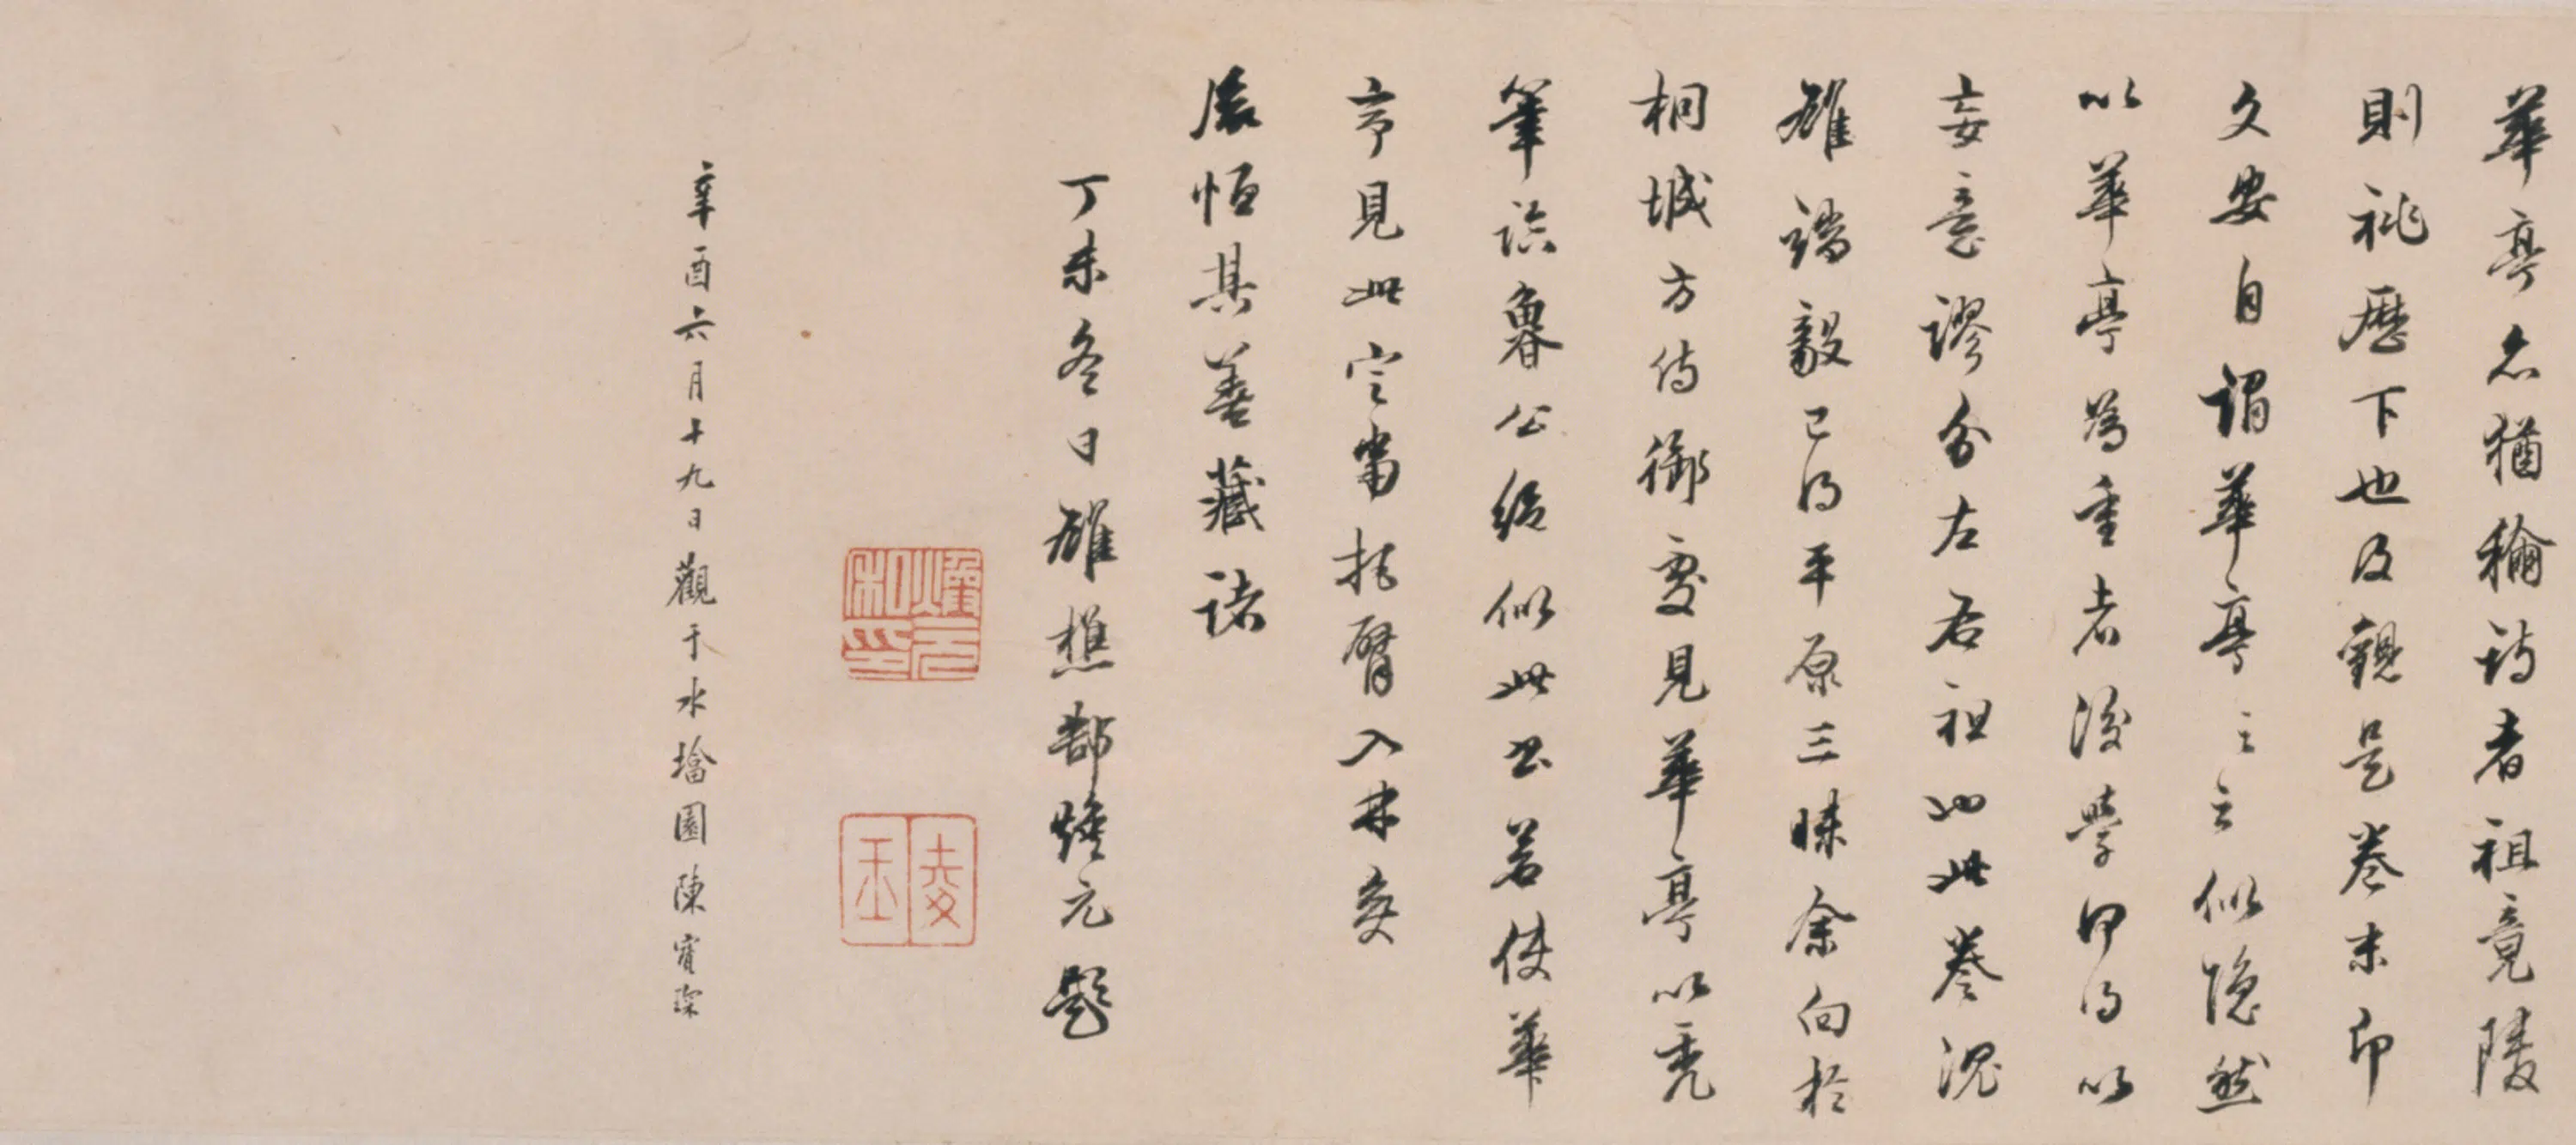 華亭名猶稱詩者祖竟陵
則祧歷下也及觀是卷末印
文安自謂華亭之主似隐然
以華亭為重者後學毋得以
妄意謬分左右祖也此卷渾
雄端毅已得平原三昧余向於
桐城方侍御處見華亭以禿
筆臨魯公絕似此書若使華
亭見此定當把臂入林矣
展恒其善藏諸
丁未冬日雄樵郜煥元題
辛酉六月十九日觀于水墖園陳寶琛